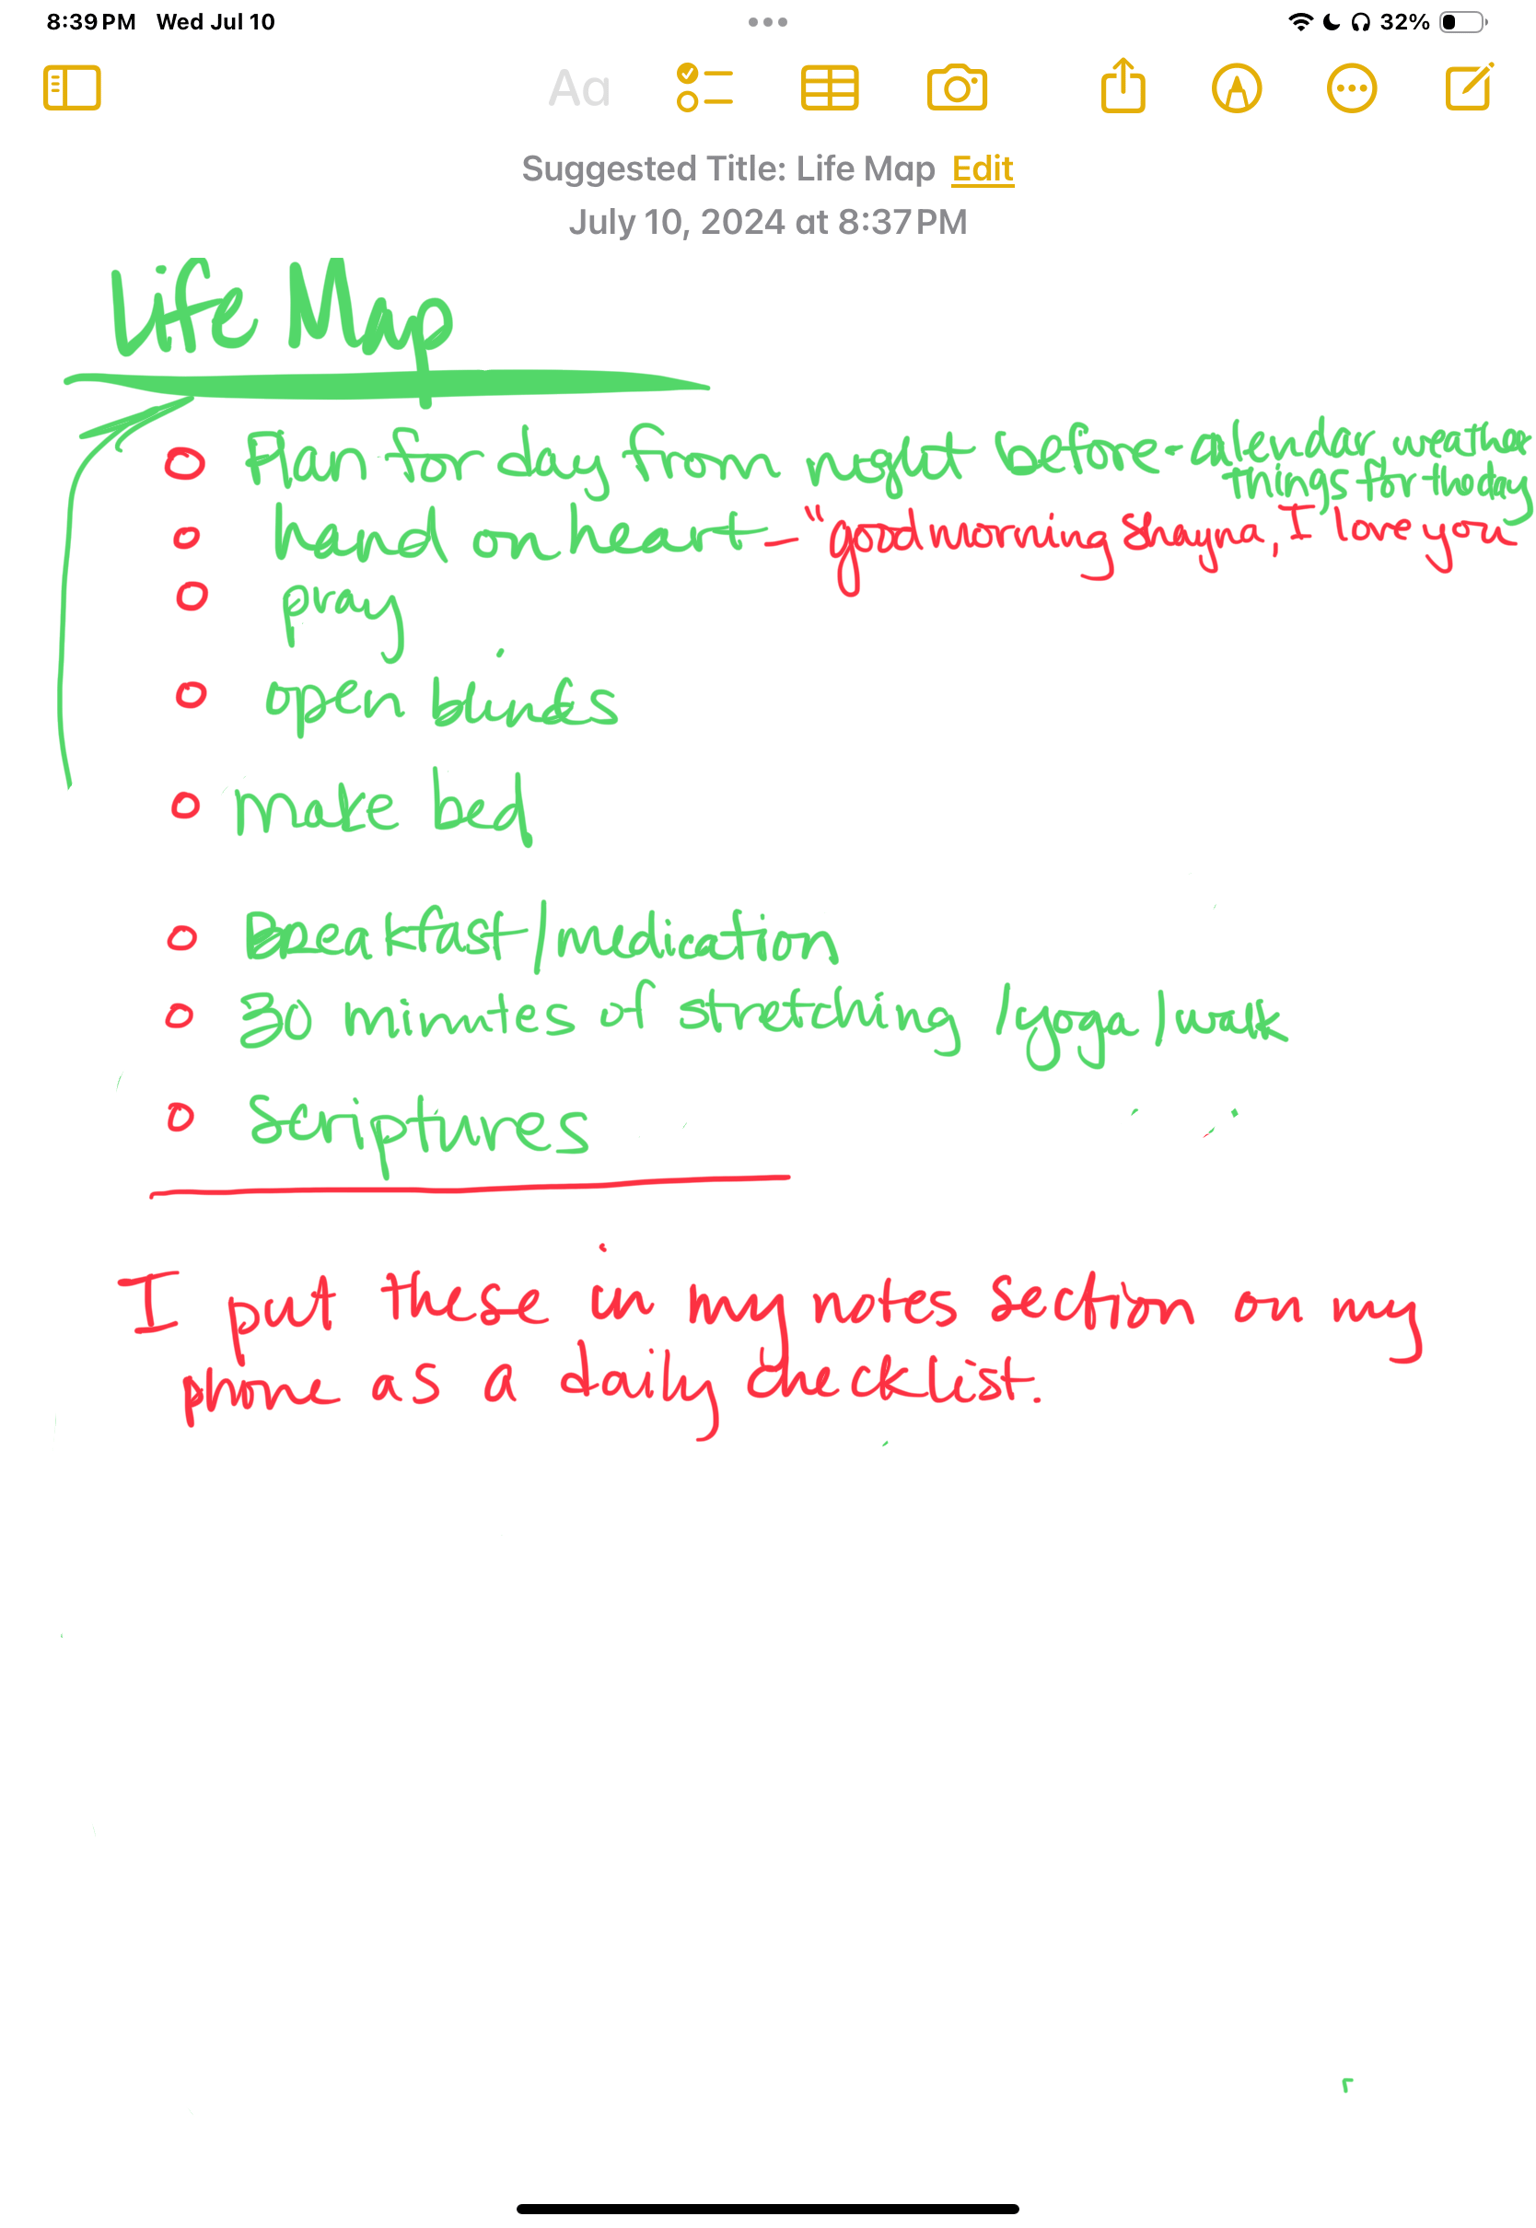 8:39 PM Wed Jul 10
32%
Aa
Suggested Title: Life Map Edit
July 10, 2024 at 8:37 PM
Life Map
Plan for day from night before - calendar weather
things for the day
hand on heart - "good morning Shayna, I love you
pray
open blinds
make bed
Breakfast/medication
30 minutes of stretching /yoga/walk
Scriptures
I put these in my notes section on my
phone as a daily checklist.